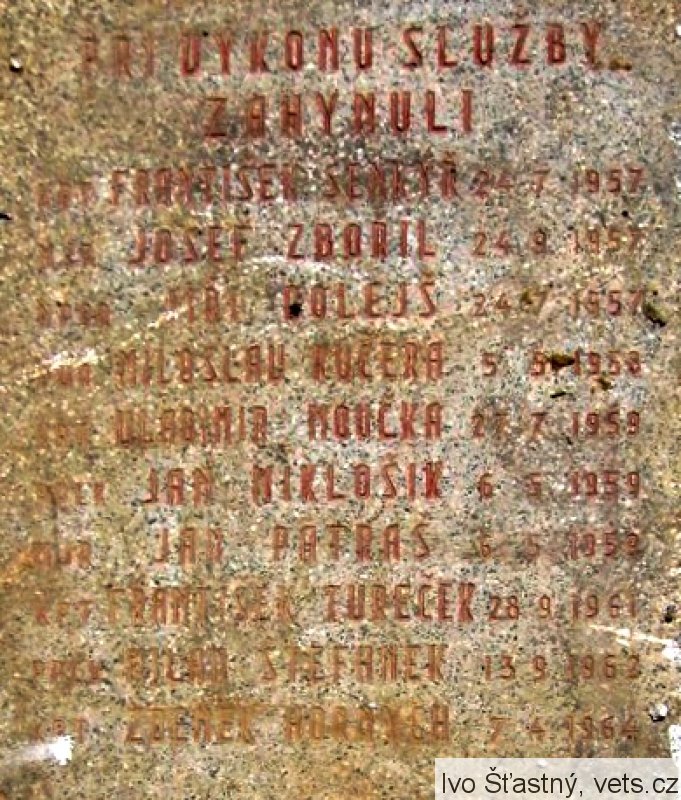 PŘI VÝKONU SLUŽBY
ZAHYNULI
FRANTIŠEK SENKÝŘ 24 7 1957
JOSEF ZBOŘIL 24 9 1957
JIŘÍ DOLEJŠ 24 7 1957
MILOSLAV KUČERA 5 1958
VLADIMÍR MOUČKA 27 7 1959
JAN MIKLOŠIK 6 5 1959
JAN PATRAŠ 6 5
KPT FRANTIŠEK ZUREČEK 28 9 1961
MILAN ŠTEFANEK 13 9 1962
ZDENĚK 7 4 1964
Ivo Šťastný, vets.cz